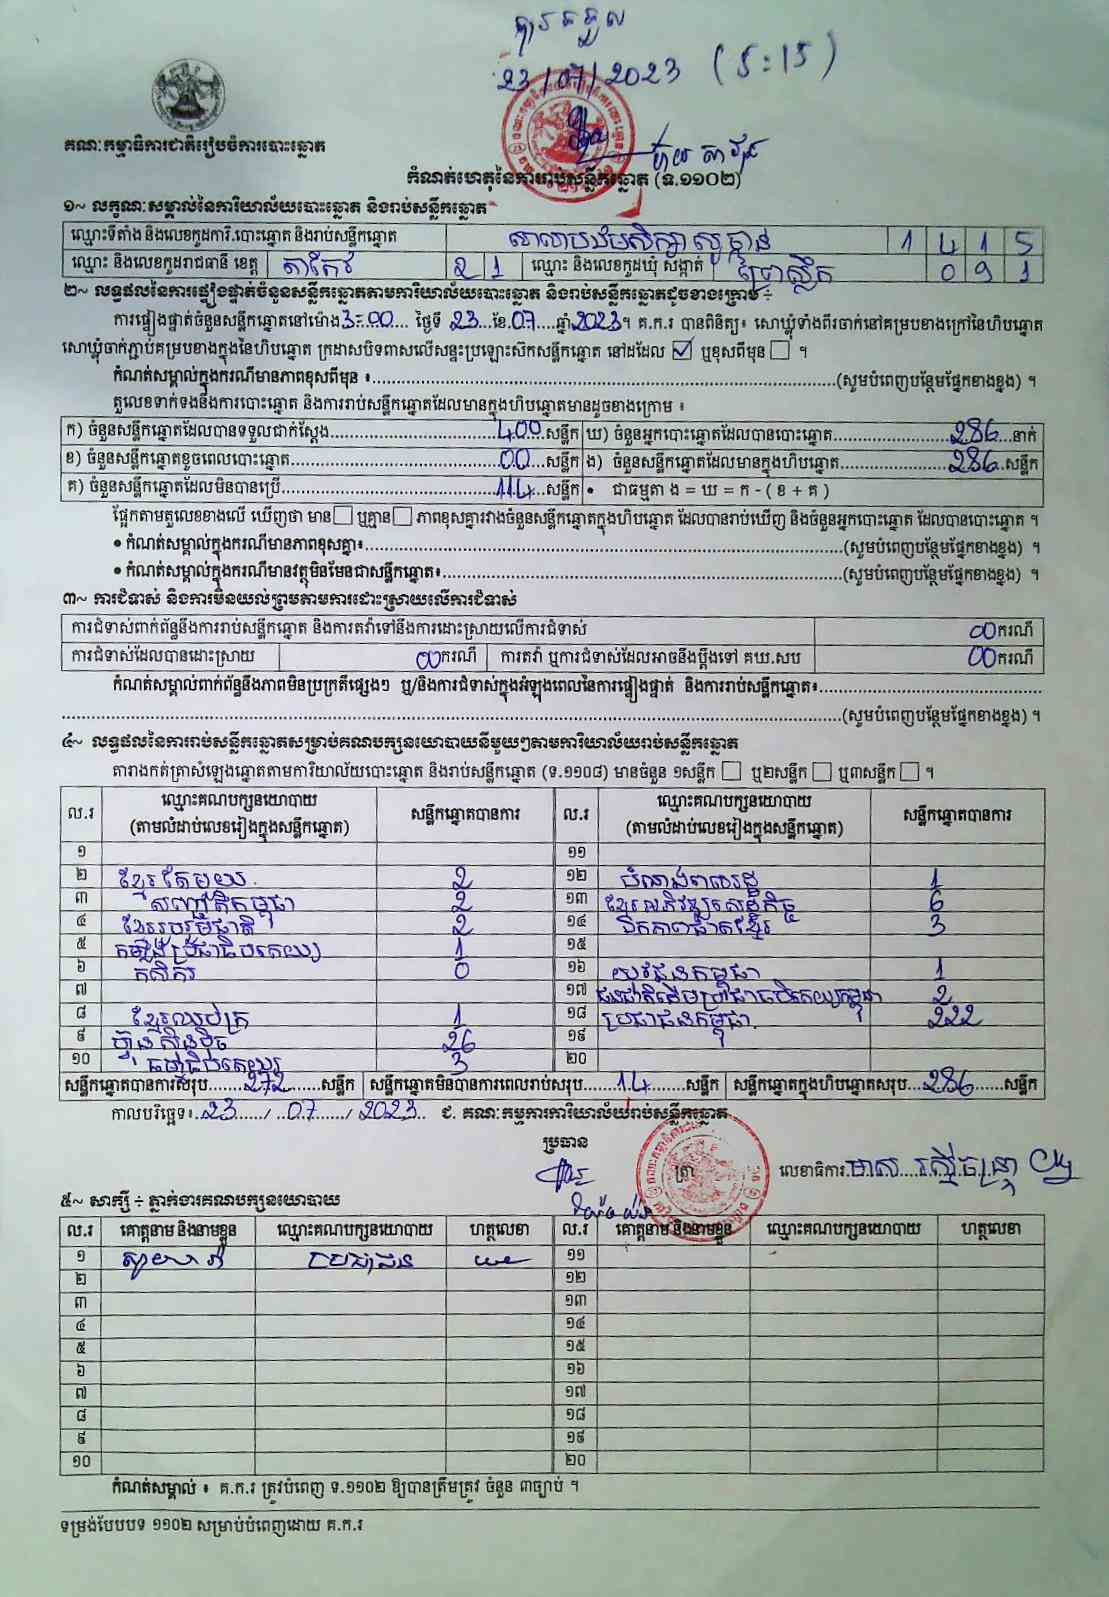 បានទទួល
23/07/2023 (5:15)
គណៈកម្មាធិការជាតិរៀបចំការបោះឆ្នោត
កំណត់ហេតុនៃការរាប់សន្លឹកឆ្នោត (ទ.១១០២)
១~ លក្ខណៈសម្គាល់នៃការិយាល័យបោះឆ្នោត និងរាប់សន្លឹកឆ្នោត
ឈ្មោះទីតាំង និងលេខកូដការិ.បោះឆ្នោត និងរាប់សន្លឹកឆ្នោត សាលាបឋមសិក្សា 1 4 1 5
ឈ្មោះ និងលេខកូដរាជធានី ខេត្ត តាកែវ 2 1 ឈ្មោះ និងលេខកូដឃុំ សង្កាត់ ព្រៃស្លឹក 0 9 1
២~ លទ្ធផលនៃការផ្ទៀងផ្ទាត់ចំនួនសន្លឹកឆ្នោតតាមការិយាល័យបោះឆ្នោត និងរាប់សន្លឹកឆ្នោតដូចខាងក្រោម ÷
ការផ្ទៀងផ្ទាត់ចំនួនសន្លឹកឆ្នោតនៅម៉ោង 3:00 ថ្ងៃទី 23 ខែ 07 ឆ្នាំ 2023។ គ.ក.រ បានពិនិត្យ៖ សោឃ្លុំទាំងពីរចាក់នៅគម្របខាងក្រៅនៃហិបឆ្នោត
សោឃ្លុំចាក់ភ្ជាប់គម្របខាងក្នុងនៃហិបឆ្នោត ក្រដាសបិទពាសលើសន្ទះប្រឡោះស៊កសន្លឹកឆ្នោត នៅដដែល ☑ ឬខុសពីមុន ☐ ។
កំណត់សម្គាល់ក្នុងករណីមានភាពខុសពីមុន ៖ (សូមបំពេញបន្ថែមផ្នែកខាងខ្នង) ។
តួលេខទាក់ទងនឹងការបោះឆ្នោត និងការរាប់សន្លឹកឆ្នោតដែលមានក្នុងហិបឆ្នោតមានដូចខាងក្រោម ៖
ក) ចំនួនសន្លឹកឆ្នោតដែលបានទទួលជាក់ស្តែង 400 សន្លឹក ឃ) ចំនួនអ្នកបោះឆ្នោតដែលបានបោះឆ្នោត 286 នាក់
ខ) ចំនួនសន្លឹកឆ្នោតខូចពេលបោះឆ្នោត 00 សន្លឹក ង) ចំនួនសន្លឹកឆ្នោតដែលមានក្នុងហិបឆ្នោត 286 សន្លឹក
គ) ចំនួនសន្លឹកឆ្នោតដែលមិនបានប្រើ 114 សន្លឹក • ជាធម្មតា ង = ឃ = ក - ( ខ + គ )
ផ្អែកតាមតួលេខខាងលើ ឃើញថា មាន ☐ ឬគ្មាន ☐ ភាពខុសគ្នារវាងចំនួនសន្លឹកឆ្នោតក្នុងហិបឆ្នោត ដែលបានរាប់ឃើញ និងចំនួនអ្នកបោះឆ្នោត ដែលបានបោះឆ្នោត ។
• កំណត់សម្គាល់ក្នុងករណីមានភាពខុសគ្នា៖ (សូមបំពេញបន្ថែមផ្នែកខាងខ្នង) ។
• កំណត់សម្គាល់ក្នុងករណីមានវត្ថុមិនមែនជាសន្លឹកឆ្នោត៖ (សូមបំពេញបន្ថែមផ្នែកខាងខ្នង) ។
៣~ ការជំទាស់ និងការមិនយល់ព្រមតាមការដោះស្រាយលើការជំទាស់
ការជំទាស់ពាក់ព័ន្ធនឹងការរាប់សន្លឹកឆ្នោត និងការតវ៉ាទៅនឹងការដោះស្រាយលើការជំទាស់ 00 ករណី
ការជំទាស់ដែលបានដោះស្រាយ 00 ករណី ការតវ៉ា ឬការជំទាស់ដែលអាចនឹងប្តឹងទៅ គឃ.សប 00 ករណី
កំណត់សម្គាល់ពាក់ព័ន្ធនឹងភាពមិនប្រក្រតីផ្សេងៗ ឬ/និងការជំទាស់ក្នុងអំឡុងពេលនៃការផ្ទៀងផ្ទាត់ និងការរាប់សន្លឹកឆ្នោត៖
(សូមបំពេញបន្ថែមផ្នែកខាងខ្នង) ។
៤~ លទ្ធផលនៃការរាប់សន្លឹកឆ្នោតសម្រាប់គណបក្សនយោបាយនីមួយៗតាមការិយាល័យរាប់សន្លឹកឆ្នោត
តារាងកត់ត្រាសំឡេងឆ្នោតតាមការិយាល័យបោះឆ្នោត និងរាប់សន្លឹកឆ្នោត (ទ.១១០៨) មានចំនួន ១សន្លឹក ☐ ឬ២សន្លឹក ☐ ឬ៣សន្លឹក ☐ ។
ល.រ ឈ្មោះគណបក្សនយោបាយ (តាមលំដាប់លេខរៀងក្នុងសន្លឹកឆ្នោត) សន្លឹកឆ្នោតបានការ ល.រ ឈ្មោះគណបក្សនយោបាយ (តាមលំដាប់លេខរៀងក្នុងសន្លឹកឆ្នោត) សន្លឹកឆ្នោតបានការ
១ ១១
២ ខ្មែរតែមួយ 2 ១២ បំណាងពលរដ្ឋ 1
៣ សញ្ជាតិកម្ពុជា 2 ១៣ ខ្មែរអភិវឌ្ឍសេដ្ឋកិច្ច 6
៤ ខ្មែររួបរួមជាតិ 2 ១៤ ឯកភាពជាតិខ្មែរ 3
៥ កម្លាំងប្រជាធិបតេយ្យ 1 ១៥
៦ កសិករ 0 ១៦ យុវជនកម្ពុជា 1
៧ ១៧ ជនជាតិដើមប្រជាធិបតេយ្យកម្ពុជា 2
៨ ខ្មែរឈប់ក្រ 1 ១៨ ប្រជាជនកម្ពុជា 222
៩ ហ្វ៊ុនស៊ិនប៉ិច 26 ១៩
១០ ធម្មាធិបតេយ្យ 3 ២០
សន្លឹកឆ្នោតបានការសរុប 272 សន្លឹក សន្លឹកឆ្នោតមិនបានការពេលរាប់សរុប 14 សន្លឹក សន្លឹកឆ្នោតក្នុងហិបឆ្នោតសរុប 286 សន្លឹក
កាលបរិច្ឆេទ៖ 23 / 07 / 2023 ជ. គណៈកម្មការការិយាល័យរាប់សន្លឹកឆ្នោត
ប្រធាន
ត្រា លេខាធិការ មាស រស្មីចន្ទ្រា
៥~ សាក្សី ÷ ភ្នាក់ងារគណបក្សនយោបាយ
ល.រ គោត្តនាម និងនាមខ្លួន ឈ្មោះគណបក្សនយោបាយ ហត្ថលេខា ល.រ គោត្តនាម និងនាមខ្លួន ឈ្មោះគណបក្សនយោបាយ ហត្ថលេខា
១ ប្រជាជន ១១
២ ១២
៣ ១៣
៤ ១៤
៥ ១៥
៦ ១៦
៧ ១៧
៨ ១៨
៩ ១៩
១០ ២០
កំណត់សម្គាល់ ៖ គ.ក.រ ត្រូវបំពេញ ទ.១១០២ ឱ្យបានត្រឹមត្រូវ ចំនួន ៣ច្បាប់ ។
ទម្រង់បែបបទ ១១០២ សម្រាប់បំពេញដោយ គ.ក.រ